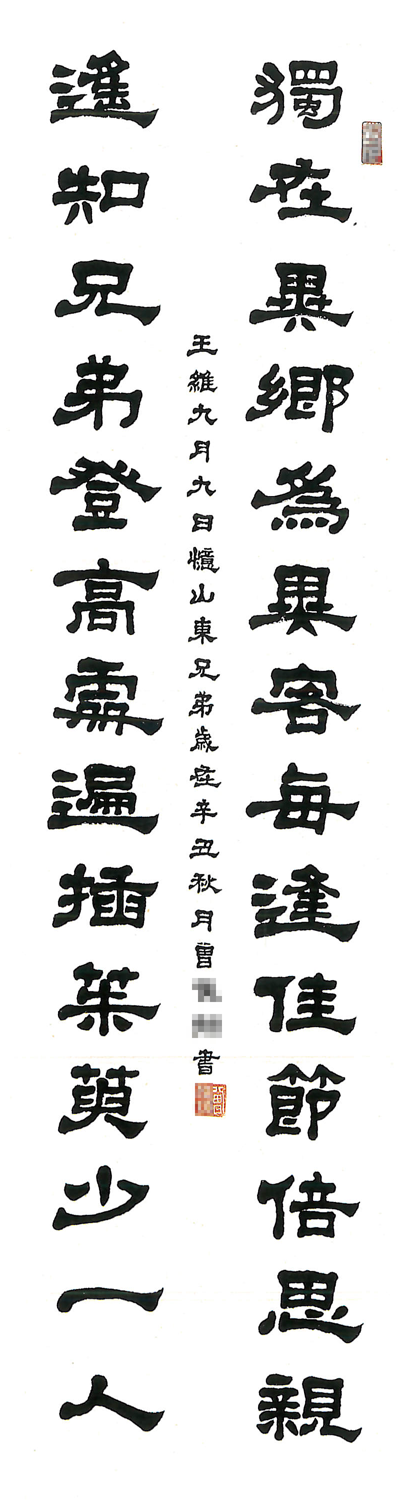 獨在異鄉為異客每逢佳節倍思親
遙知兄弟登高處遍插茱萸少一人
王維九月九日憶山東兄弟歲在辛丑秋月曾書